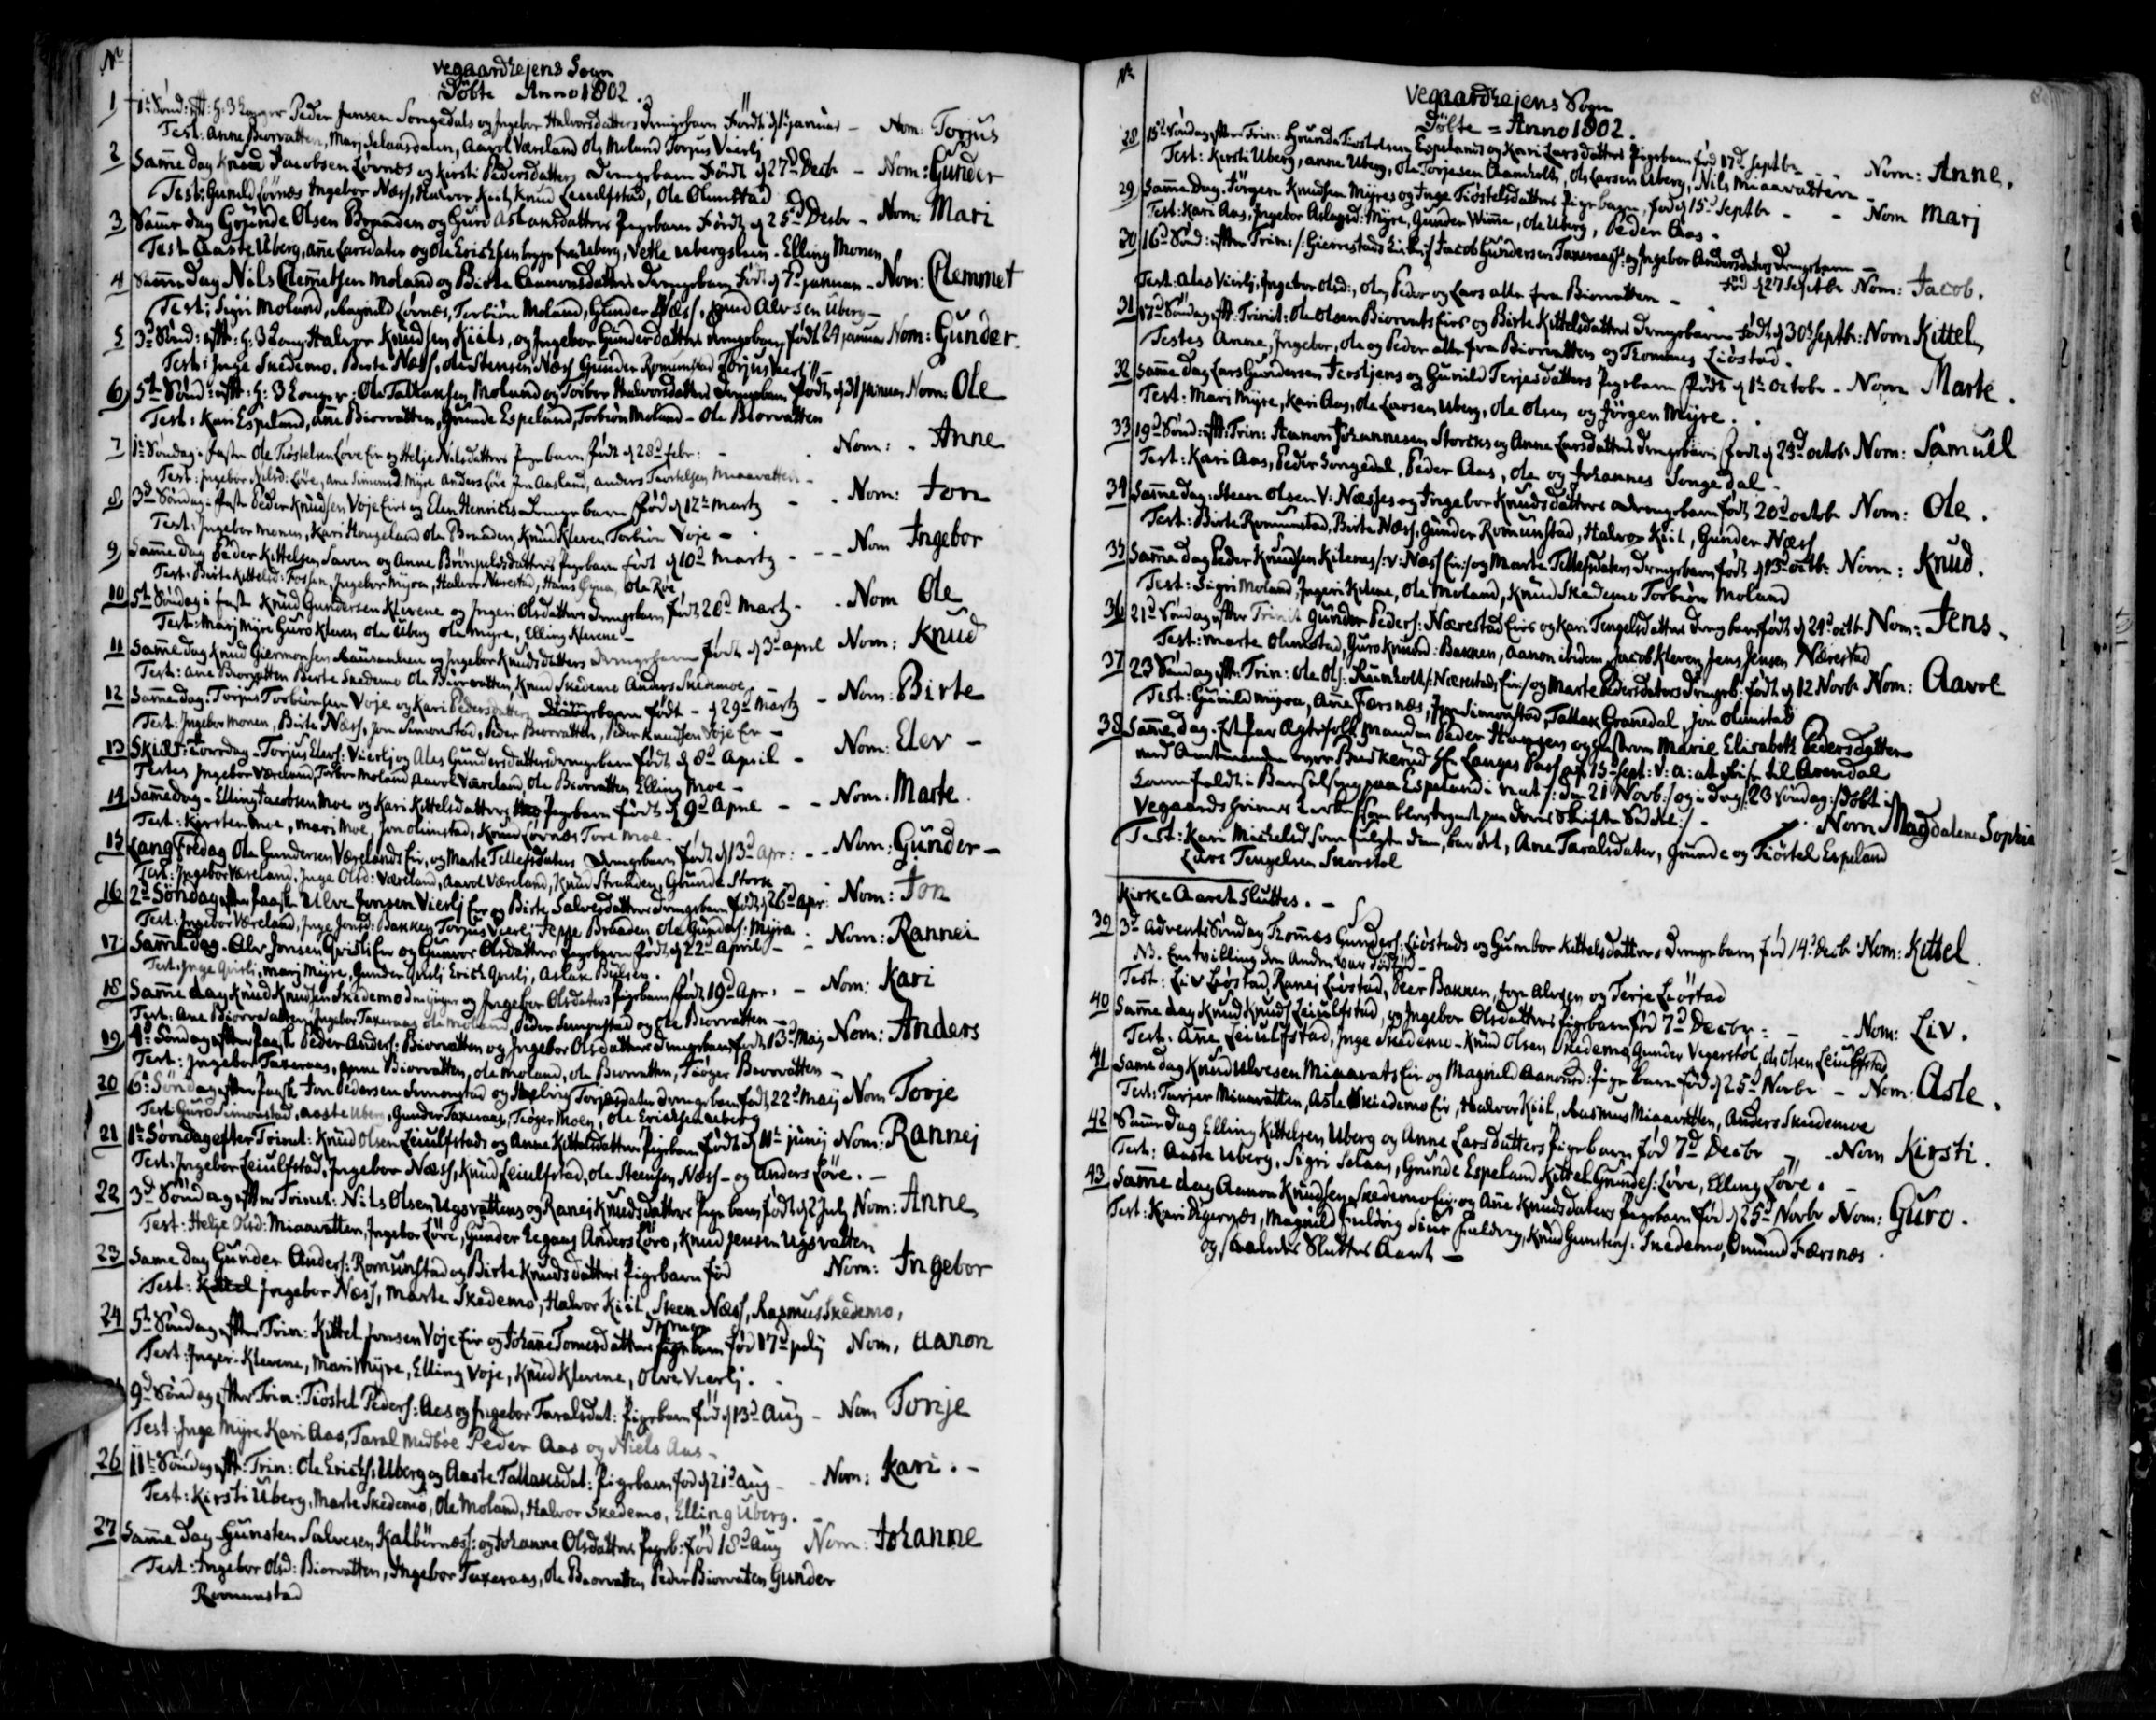 No
Vegaardhejens Sogn
Döbte Anno 1802.
1 1te Sönd: eft: H: 3 Konger Peder Jensen Songedals og Ingebor Halvorsdatters Drengebarn Födt d 1te januar - Nom: Torjus
Test: Anne Biorvatten, Marj Selaasdalen, Aavol Væreland Ole Moland Torjus Vierlj
2 Samme dag Knud Jacobsen Lövnes og Kirsti Pedersdatters Drengebarn Födt d 27d Decb - Nom: Gunder
Test: Gunild Lövnæs Ingebor Næss, Halvor Kiil, Knud Leiulfstad, Ole Olimstad
3 Samme dag Gojunde Olsen Braaden og Guro Aslaksdatters Pigebarn Födt d 25d Decbr - Nom: Mari
Test Aaste Uberg, Anne Larsdater og Ole Erichsen begge fra Uberg, Vetle Ubergslien - Elling Monen
4 Samme Dag Nils Clemetsen Moland og Birte Aanonsdatters Drengebarn Födt d 7de januar - Nom: Clemmet
Test: Sigri Moland, Magnild Lövnæs, Torbiön Moland, Gunder Næss, Knud Alvsen Uberg -
5 3de Sönd: eft: H: 3 Kong Halvor Knudsen Kiils, og Ingebor Gunderdatters Drengebarn födt 24 januar Nom: Gunder
Test: Inge Skedemo, Birte Næss, Ole Stensen Næss Gunder Romunstad Torjus Vierlj -
6 5te Sönd: eft: H: 3 Konger: Ole Tallaksen Moland og Torbor Halvorsdatters Drengebarn födt d 31 januar Nom: Ole
Test: Kari Espeland, Anne Biorvatten, Grunde Espeland, Torbiön Moland - Ole Biorvatten
7 1te Söndag i Faste Ole Tiöstelsen Löve Eir og Helje Nilsdatters Pigebarn födt d 28d febr: - Nom: - Anne
Test: Ingebor Nilsd: Löve, Ane Simonsd: Myre Anders Löve Jon Aasland, Anders Taaraldsen Miaavatten -
8 3d Söndag i Faste Peder Knudsen Voje Eirs og Elen Henrichsd Drengebarn Föd d 12te Martz - Nom: Jon
Test: Ingebor Monen, Kari Hougeland Ole Braaden, Knud Kleven Torbiön Voje -
9 Samme Dag Peder Kittelsen Saven og Anne Brönjulsdatters Pigebarn födt d 10d Martz - Nom Ingebor
Test: Birte Kittelsd: Fossen, Ingebor Myra, Halvor Nærestad, Hans Qvina, Ole Röe,
10 5te Söndag i Faste Knud Gundersen Klevene og Ingeri Olsdatters Drengebarn födt 20d Martz - Nom Ole
Test: Marj Myre Guro Kleven Ole Uberg Ole Myre, Elling Klevene -
11 Samme dag Knud Giermonsen og Ingebor Knudsdatters Drengebarn födt d 3d april Nom: Knud
Test: Ane Biorvatten Birte Skedemo Ole Biorvatten, Knud Skedemo Anders Skedemoe
12 Samme dag: Torjus Torbiönsen Voje og Kari Pedersdatters Pigebarn födt - d 29d Martz - Nom: Birte
Test: Ingebor Monen, Birte Næss, Jon Simonstad, Peder Biorvatten, Peder Knudsen Voje Eir -
13 Skiær-Torsdag - Torjus Elevs: Vierlj og Ales Gundersdatters Drengebarn födt d 8d April - Nom: Elev -
Testes Ingebor Væreland, Torbor Moland Aavol Væreland, Ole Biorvatten Elling Moe -
14 Samme dag - Elling Jacobsen Moe og Kari Kittelsdatters Pigebarn födt d 9d April - Nom: Marte
Test: Kirsten Moe, Mari Moe, Jon Olimstad, Knud Lövnæs Tore Moe -
15 Lang Fredag Ole Gundersen Værelands Eir, og Marte Tellefsdatters Drengebarn födt d 13d Apr: - Nom: Gunder -
Test: Ingebor Væreland, Inge Olsd: Væreland, Aavol Væreland, Knud Stranden, Grunde Stork
16 2d Söndag efter Paask Ulve Jonsen Vierlj Eir og Birte Salvesdatters Drengebarn födt d 26d Apr: Nom: Jon
Test: Ingebor Væreland, Inge Jonsd: Bakken Torjus Vierlj Jeppe Braaden Ole Gunders: Myra
17 Samme Dag - Alv Jonsen Qvisli Eir og Gunvor Olsdatters Pigebarn Födt d 22d April - Nom: Rannei
Test: Inge Qvisli, Marj Myre, Gunder Qvisli Erich Qvisli, Aslak Bylsen.
18 Samme dag Knud Knudsen Skedemo d yngre og Ingebor Olsdatters Pigebarn födt 19d Apr: - Nom: Kari
Test: Ane Biorvatten, Ingebor Taxeraas Ole Moland, Peder Simonstad og Ole Biorvatten -
19 4d Söndag efter Paask Peder Anders: Biorvatten og Ingebor Olsdatters Drengebarn födt 13d Maj Nom: Anders
Test: Ingebor Taxeraas, Anne Biorvatten, Ole Moland, Ole Biorvatten, Tiöger Biorvatten -
20 6te Söndag efter Paask Jon Pedersen Simonstad og Torjesdater Drengebarn födt 22d Maij Nom Torje
Test Guro Simonstad, Aaste Uberg, Gunder Taxeraas, Tiöger Moen, Ole Erichsen Uberg
21 1te Söndag efter Trinit: Knud Olsen Leiulfstads og Anne Kittelsdatters Pigebarn födt d 11te junij Nom: Rannej
Test: Ingebor Leiulfstad, Ingebor Næss, Knud Leiulfstad, Ole Steensen Næss - og Anders Löve. -
22 3d Söndag efter Trinit: Nils Olsen Ugsvattens og Ranej Knudsdatters Pigebarn, födt d 2 July Nom: Anne
Test: Helje Olsd: Miaavatten, Ingebor Löve, Gunder Anders Löve, Knud Jensen Ugsvatten
23 Same Dag Gunder Anders: Romunstad og Birte Knudsdatters Pigebarn föd Nom: Ingebor
Test: Ingebor Næss, Marte Skedemo, Halvor Kiil, Steen Næss, Rasmus Skedemo,
24 5te Söndag efter Trin: Kittel Jonsen Voje Eir og Johanne Tomesdatters Drengebarn föd 17d july Nom, Aanon
Test: Ingeri Klevene, Mari Myre, Elling Voje, Knud Klevene, Olver Vierlj.
9d Söndag efter Trin: Tiöstel Peders: Aas og Ingebor Taralsdat: Pigebarn föd d 13d Aug - Nom Tonje
Test: Inge Myre Kari Aas, Taral Midböe Peder Aas og Niels Aas -
26 11te Söndag eft: Trin: Ole Erichs: Uberg og Aaste Tallaksdat: Pigebarn föd d 21d Aug - Nom: Kari. -
Test: Kirsti Uberg, Marte Skedemo, Ole Moland, Halvor Skedemo, Elling Uberg.
27 Samme Dag Gunsten Salvesen Kalbörnæs: og Johanne Olsdatters Pigeb: föd 18d Aug Nom: Johanne
Test: Ingebor Olsd: Biorvatten, Ingebor Taxeraas, Ole Biorvatten Peder Biorvatten Gunder
Romunstad
No
Vegaardhejens Sogn
Döbte = Anno 1802.
28 15de Söndag efter Trin: Grunde Tiöstelsen Espelands og Kari Larsdatters Pigebarn föd 17d Septbr - Nom: Anne.
Test: Kirsti Uberg, Anne Uberg, Ole Torjesen Aamholt, Ole Larsen Uberg, Nils Miaavatten -
29 Samme Dag: Jörgen Knudsen Myres og Inge Tiöstelsdatters Pigebarn, föd d 15d Septbr - Nom Marj
Test: Kari Aas, Ingebor Aslagsd: Myre, Gunder Winne, Ole Uberg, Peder Aas -
30 16d Sönd: efter Trin: /: Gierrestads Kirke :/ Jacob Gundersen Taxeraas: og Ingebor Andersdaters Drengebarn -
föd d 27 Septbr Nom: Jacob.
Test: Ales Vierlj, Ingebor Olsd:, Ole, Peder og Lars alle fra Biorvatten -
31 17d Söndag eft: Trinit: Ole Olsen Biorvats Eirs og Birte Kittelsdatters Drengebarn födt d 30d Septb: Nom Kittel
Testes Anne, Ingebor, Ole og Peder alle fra Biorvatten og Thommes Liöstad.
32 Samme dag Lars Gundersen Ferstjens og Gunild Terjesdatters Pigebarn födt d 1te Octobr - Nom Marte.
Test: Mari Myre, Kari Aas, Ole Larsen Uberg, Ole Olsen og Jörgen Myre.
33 19d Sönd: eft: Trin: Aanon Johannesen Storcks og Anne Larsdatters Drengebarn, födt d 23d octobr Nom: Samuel
Test: Kari Aas, Peder Songedal, Peder Aas, Ole og Johannes Songedal -
34 Samme dag: Steen Olsen V: Næsses og Ingebor Knudsdatters Drengebarn födt 20d octobr Nom: Ole.
Test: Birte Romunstad, Birte Næss, Gunder Romunstad, Halvor Kiil, Gunder Næss
35 Samme dag Peder Knudsen Kilenes /: V: Næss Eir: / og Marte Tellefsdaters Drengebarn födt d 13d octb: Nom: Knud.
Test: Sigri Moland, Ingeri Kilene, Ole Moland, Knud Skedemo Torbiön Moland
36 21d Söndag efter Trinit Gunder Peders: Nærestad Eirs og Kari Tengelsdatters Drengebarn födt d 29d octb. Nom: Jens.
Test: Marte Olimstad, Guro Knudsd: Bakken, Aanon ibidem, Jacob Kleven, Jens Jensen Nærestad
37 23 Söndag eft: Trin: Ole Ols: /: Nærestads Eir: / og Marte Pedersdaters Drengeb: födt d 12 Novb: Nom: Aavol
Test: Gunild Myra, Anne Færsnæs, Jon Simonstad, Tallak Granedal, Jon Olimstad
38 Samme dag. Et par Ægtefolk manden Peder Hansen og Hustruen Marie Elisabeth Pedersdatter
med Amtmanden over Buskerud Hr Langes Pass af 15d Sept: d: a: at reise til Arendal
kom faldt i Barselseng paa Espeland i nat /: den 21 Novb: / og i dag /: 23 Söndag: / döbt i
Vegaardshejens Kirke -
Nom Magdalene Sophia
Test: Kari Michelsd som fulgte dem, bar det, Ane Taralsdater, Grunde og Tiöstel Espeland
Lars Tengelsen Skorstöl
Kirke Aaret Sluttes. -
39 3d Advents Söndag Thomæs Gunders: Liöstads og Gunbor Kittelsdatters Drengebarn föd 14d Decbr Nom: Kittel.
NB. En tvilling den Anden var dödföd -
Test: Liv Liöstad, Ranej Liöstad, Peer Bakken, Jon Alvsen og Terje Liöstad
40 Samme dag Knud Knuds: Leiulfstad, og Ingebor Olsdatters Pigebarn föd 7d Decbr: - Nom: Liv.
Test. Anne Leiulfstad, Inge Skedemo - Knud Olsen Skedemo, Gunder Vegerstöl, Ole Olsen Leiulfstad
41 Same dag Knud Ulvesen Miaavats Eir og Magnild Aanonsd: Pigebarn föd d 25d Novbr - Nom: Asle.
Test: Turjer Miaavatten, Asle Skiedemo Eir, Halvor Kiil, Rasmus Miaavatten, Anders Skedemoe
42 Samme Dag Elling Kittelsen Uberg og Anne Larsdatters Pigebarn föd 7d Decbr - Nom Kirsti.
Test: Aaste Uberg, Sigri Selaas, Grunde Espeland Kittel Grundes: Löve, Elling Löve.
43 Samme dag Aanon Knudsen Skedemo Eir: og Anne Knudsdaters Pigebarn föd d 25d Novbr Nom: Guro.
Test: Kari Digernæs, Magnild Fieldvig Siur Fieldvig, Knud Gunstens: Skedemo, Omund Færsnæs.
og saaledes Sluttes Aaret -